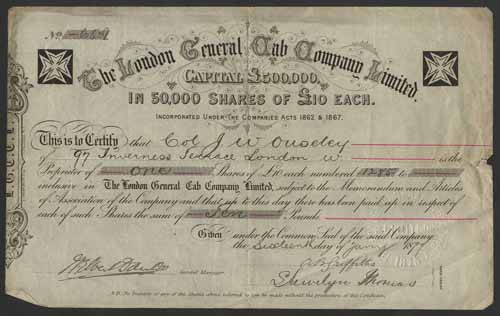 The London General Cab Company Limited.
CAPITAL £500,000.
IN 50,000 SHARES OF £10 EACH.
INCORPORATED UNDER THE COMPANIES ACTS 1862 & 1867.
This is to Certify that Col J W Ouseley
of 97 Inverness Terrace London W is the
Proprietor of one Shares of £10 each numbered 1285 to
inclusive in The London General Cab Company Limited, subject to the Memorandum and Articles
of Association of the Company and that up to this day there has been paid up in respect
of each of such Shares the sum of Ten Pounds
Given under the Common Seal of the said Company
the Sixteenth day of Jany 187
General Manager
Llewelyn Thomas
N.B. No Transfer of any of the Shares above referred to can be made without the production of this Certificate.
L.G.C.C.L.